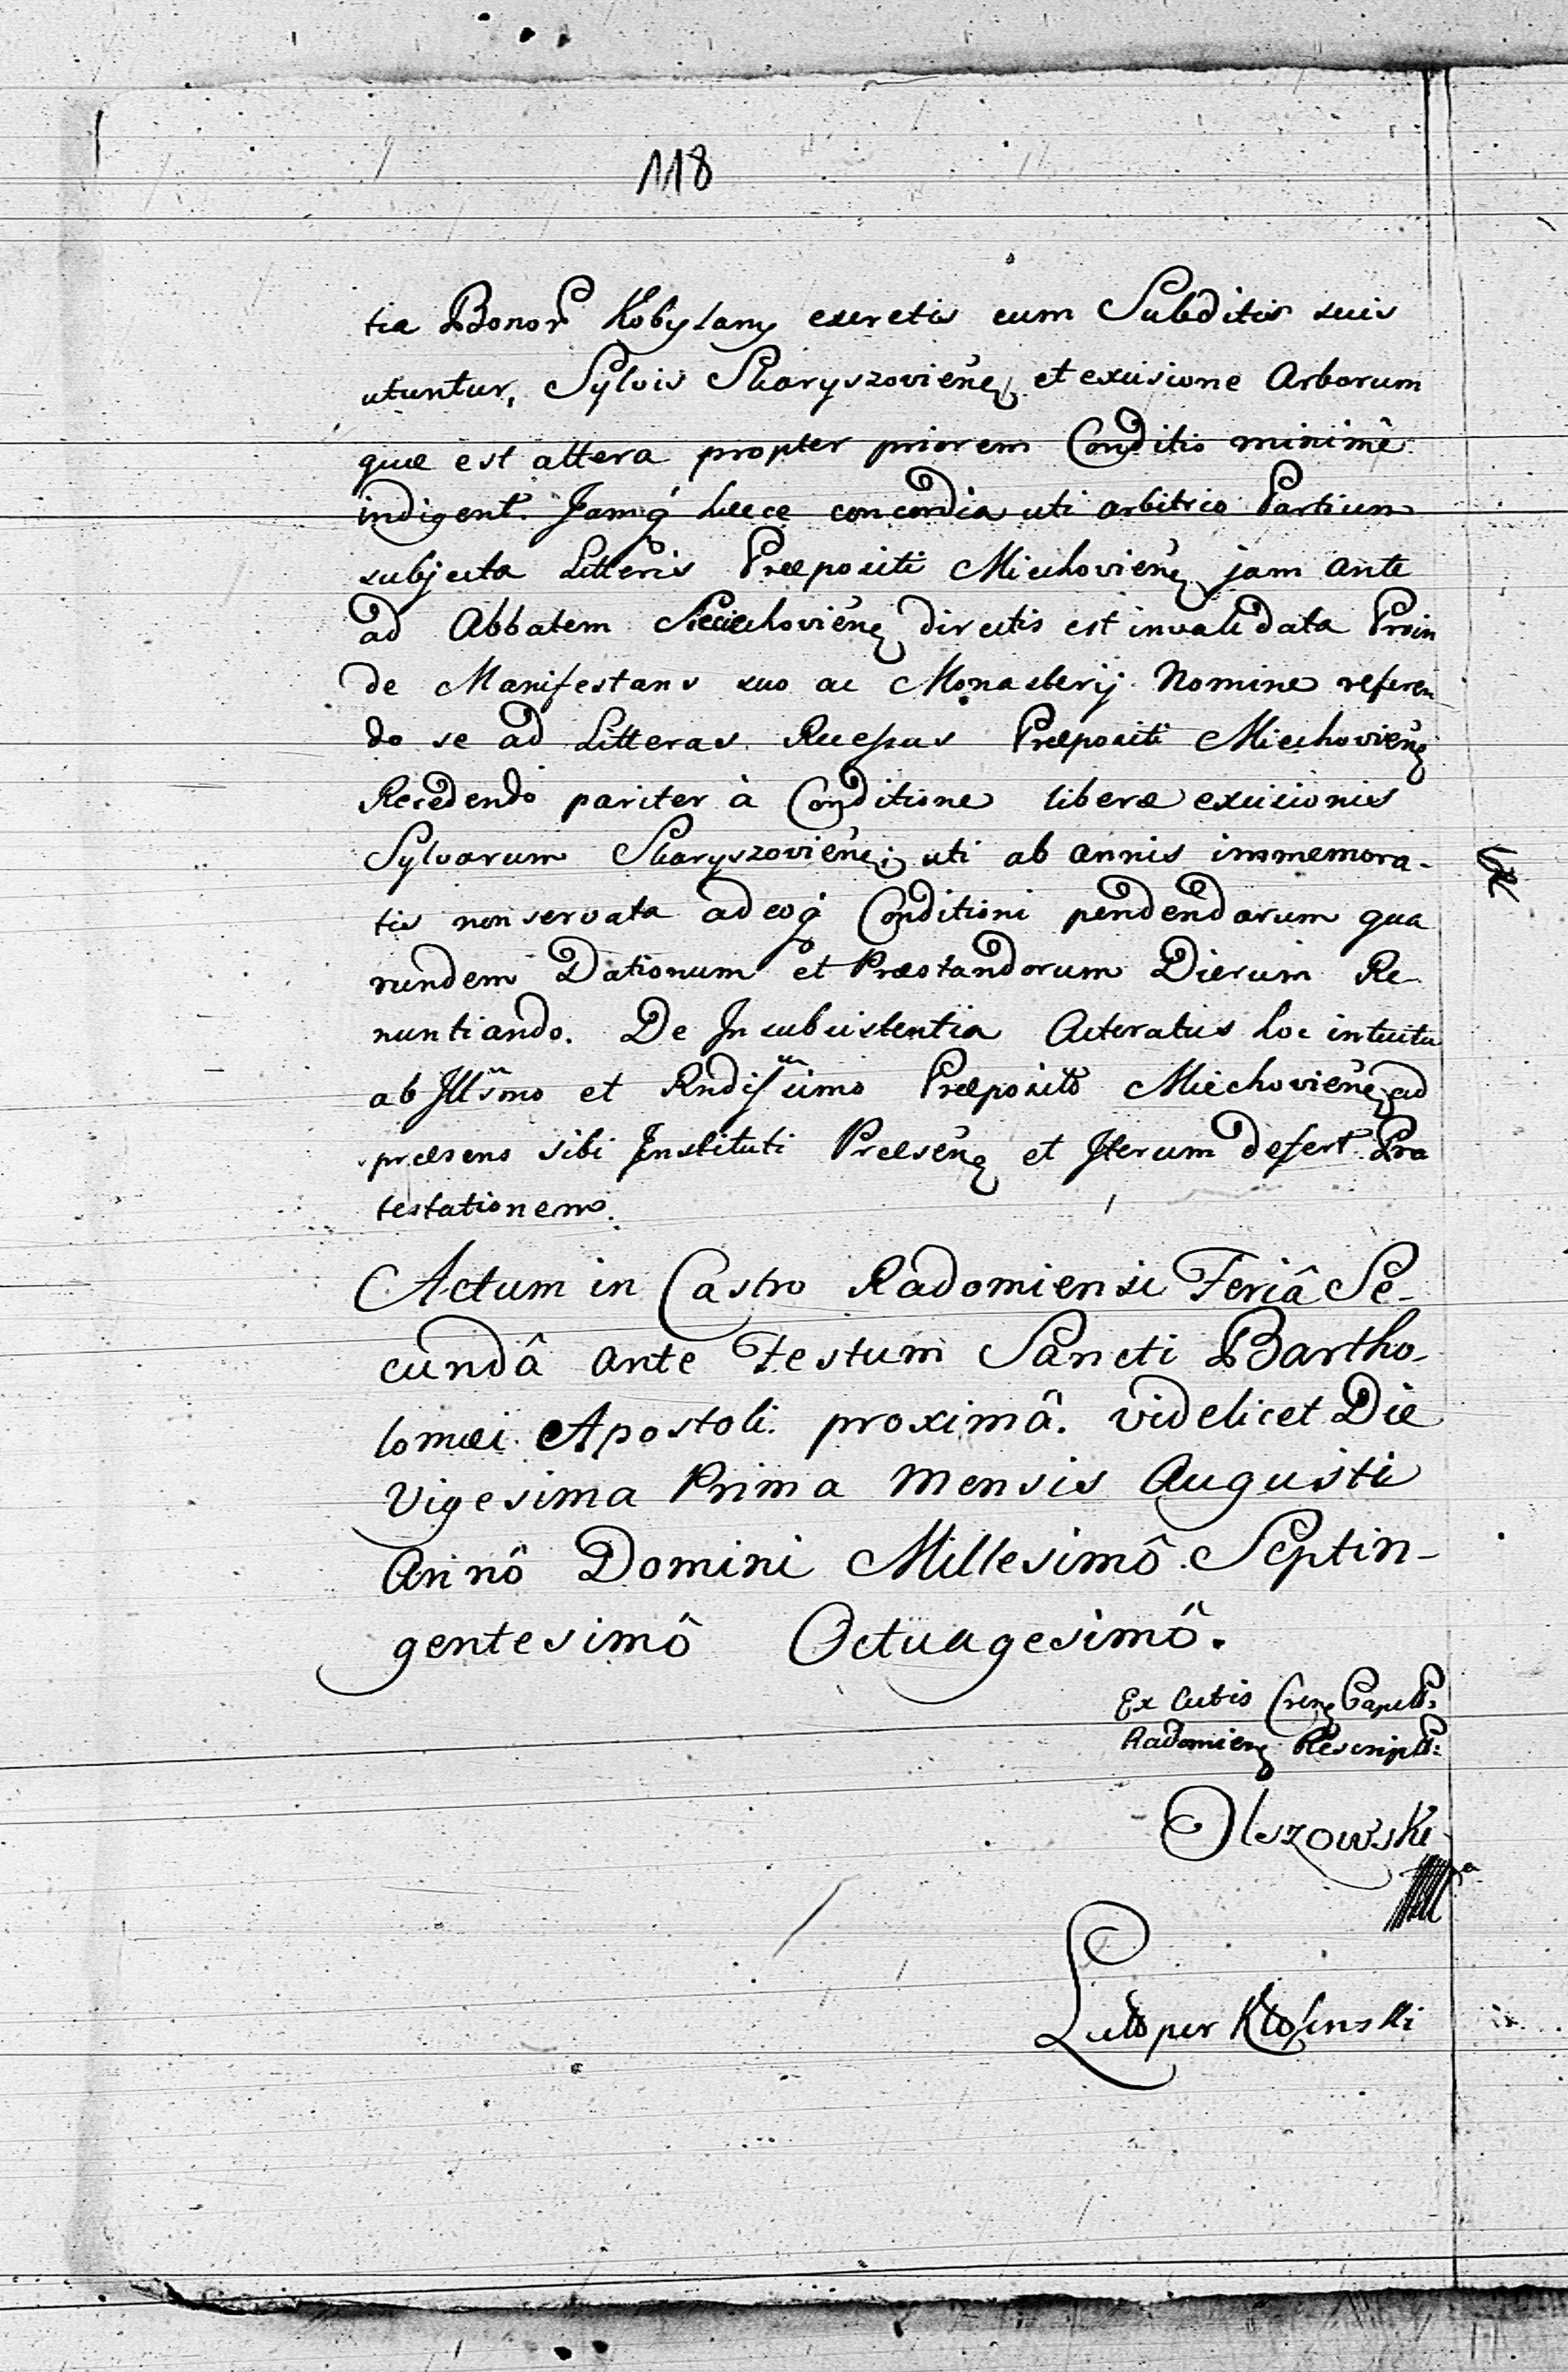 118
tia Bonor Kobylany exeretis cum Subditis suis
utuntur, Sylvis Skaryszovienē et excisione Arborum
quæ est altera propter priorem Conditio minimê
indigent. Jamq́ hæce concordia uti arbitrio Partium
subjecta Litteris Præpositi Miechovienē jam ante
ad Abbatem Sieciechovienē directis est invalidata Proin
de Manifestans suo ac Monasterij Nomine referen
do se ad Litteras Recessus Præpositi Miechovienē
Recedendo pariter à Conditione liberæ excisionis
Sylvarum Skaryszovienē; uti ab annis immemora-
tis non servata adeoq́ Conditioni pendendarum qua
rundem Dationum et Præstandorum Dierum Re-
nuntiando. De Insubsistentia Acteratus hoc intuitu
ab Illsmo et Rndissimo Præposito Miechovienē ad
præsens sibi Instituti Præsenē et Iterum defert Pro
testationem.
Actum in Castro Radomiensi Feriâ Se-
cundâ ante Festum Sancti Bartho-
lomæi Apostoli proximâ. videlicet Die
Vigesima Prima Mensis Augusti
Annô Domini Millesimô Septin-
gentesimô Octuagesimô.
Ex Actis Capit:
Radomien Rescript:
Olszowski
Lect per Kłosinski